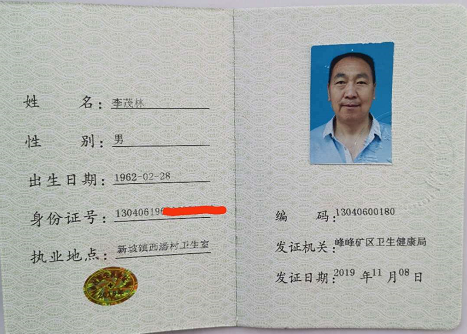 姓 名：李茂林
性 别：男
出生日期：1962-02-28
身份证号：130406196
执业地点：新坡镇西潘村卫生室
编 码：13040600180
发证机关：峰峰矿区卫生健康局
发证日期：2019 年 11 月 08 日